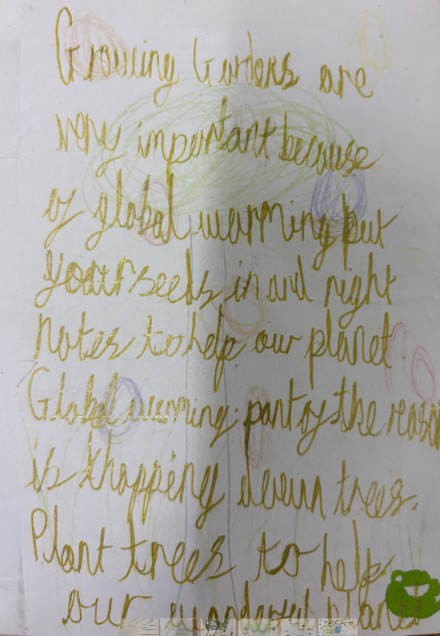 Growing Gardens are
very important because
of global warming put
your seeds in and right
notes to help our planet.
Global warming part of the reason
is chopping down trees.
Plant trees to help
our planet